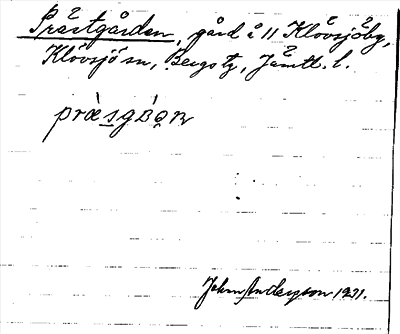 Prästgården, gård å 11 Klövsjöby,
Klövsjö sn, Bergs tg, Jämtl. l.
præ̀sgɒ̀ʀ
John Anderson 1921.